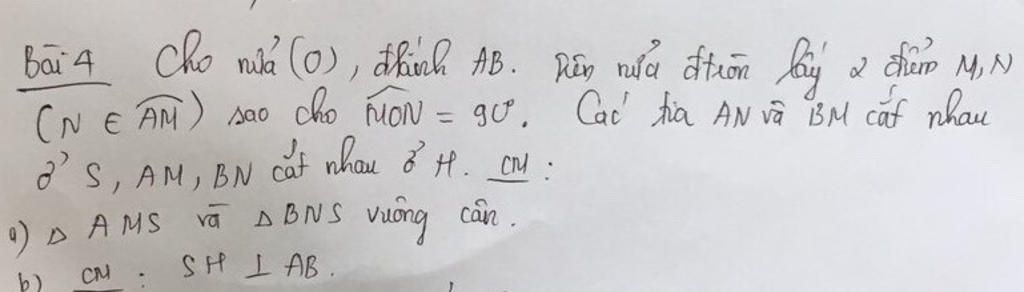 Bài 4 Cho nửa (O), đkính AB. Trên nửa đtròn lấy 2 điểm M, N
(N ∈ AM) sao cho MON = 90°. Các tia AN và BM cắt nhau
ở S, AM, BN cắt nhau ở H. CM :
a) Δ AMS và Δ BNS vuông cân.
b) CM : SH ⊥ AB.